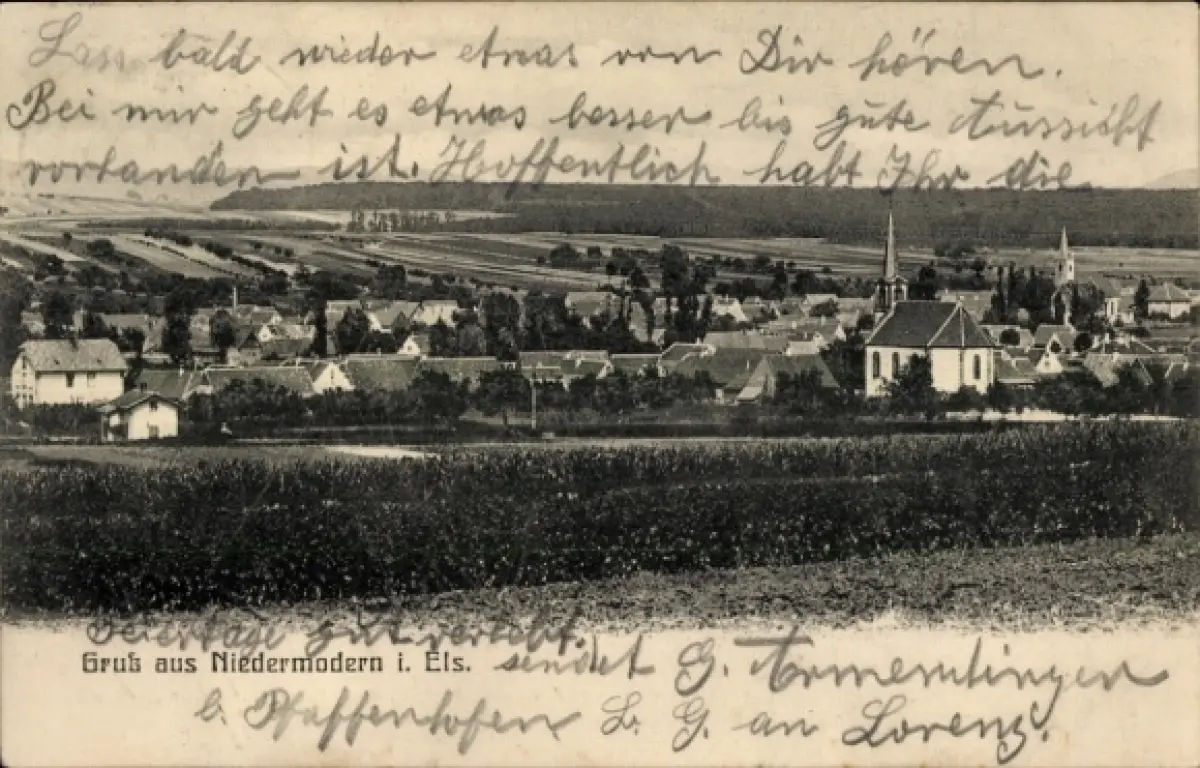 Lass bald wieder etwas von Dir hören.
Bei mir geht es etwas besser bis gute Aussicht
vorhanden ist. Hoffentlich habt Ihr die
Feiertage gut verlebt.
Gruß aus Niedermodern i. Els.
sendet G.
b. Pfaffenhofen L. G. an Lorenz.